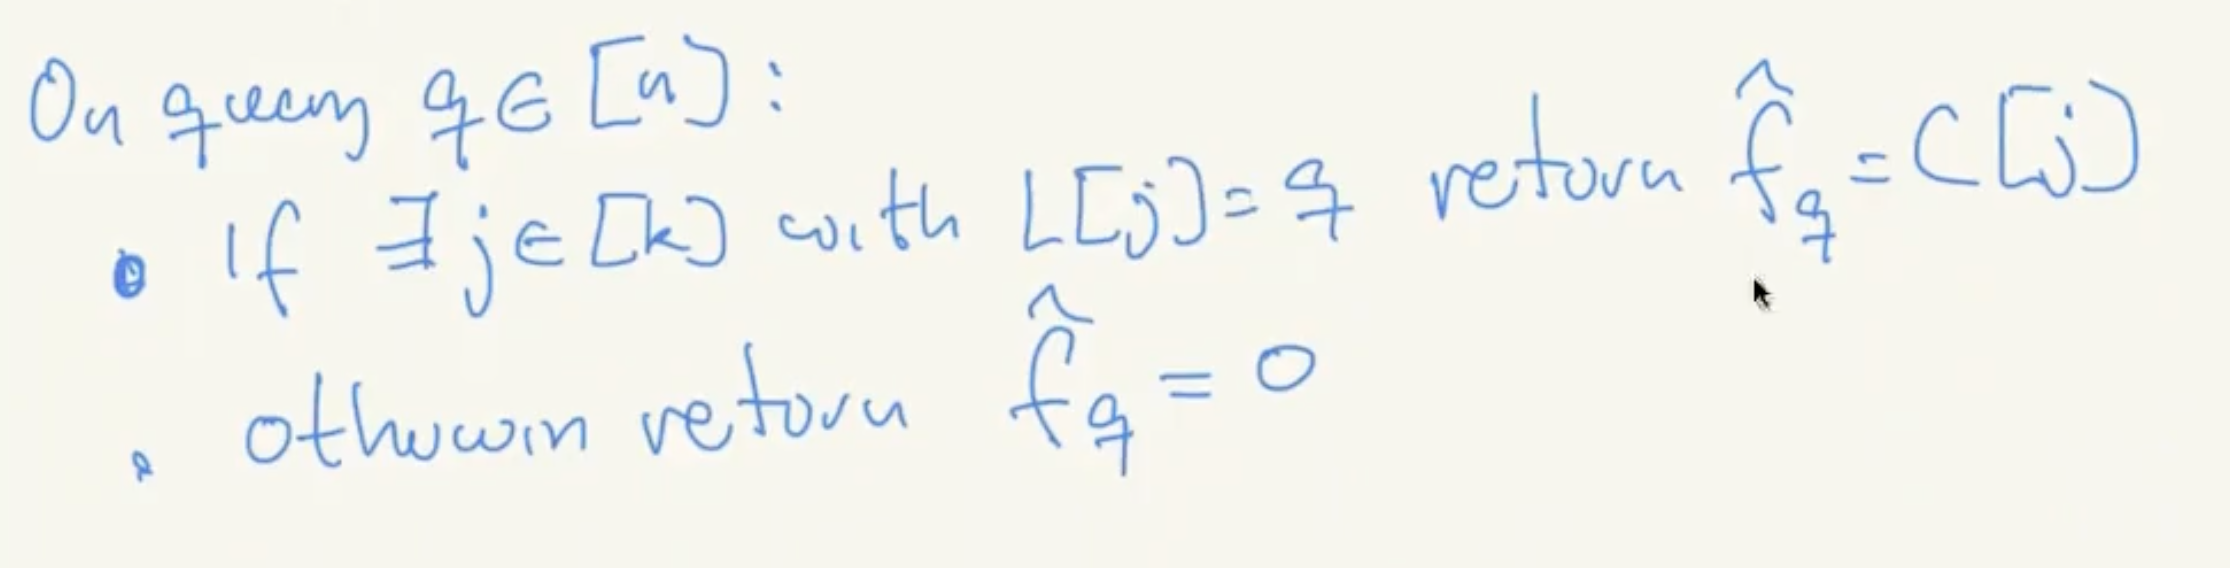 On query q ∈ [n]:
• If ∃ j ∈ [k] with L[j] = q return f̂_q = C[j]
• otherwise return f̂_q = 0